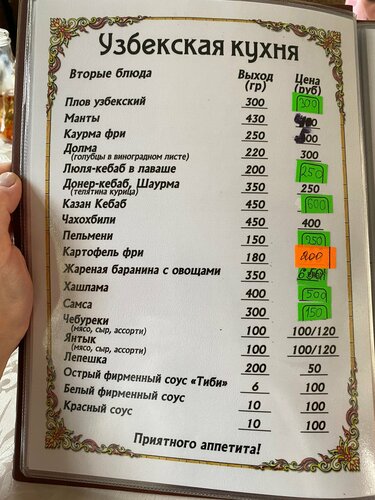 Узбекская кухня
Вторые блюда Выход (гр) Цена (руб)
Плов узбекский 300 300
Манты 430
Каурма фри 250
Долма 220 300
(голубцы в виноградном листе)
Люля-кебаб в лаваше 200 250
Донер-кебаб, Шаурма 350 250
(телятина курица)
Казан Кебаб 450 600
Чахохбили 450 400
Пельмени 150 250
Картофель фри 180 200
Жареная баранина с овощами 350
Хашлама 400 500
Самса 300 150
Чебуреки 100 100/120
(мясо, сыр, ассорти)
Янтык 100 100/120
(мясо, сыр, ассорти)
Лепешка 200 50
Острый фирменный соус «Тиби» 6 100
Белый фирменный соус 10 100
Красный соус 10 100
Приятного аппетита!